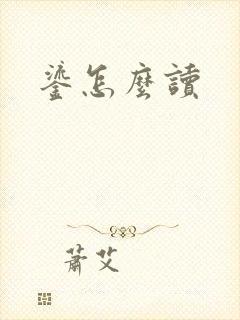 鎏怎麼讀
蕭艾